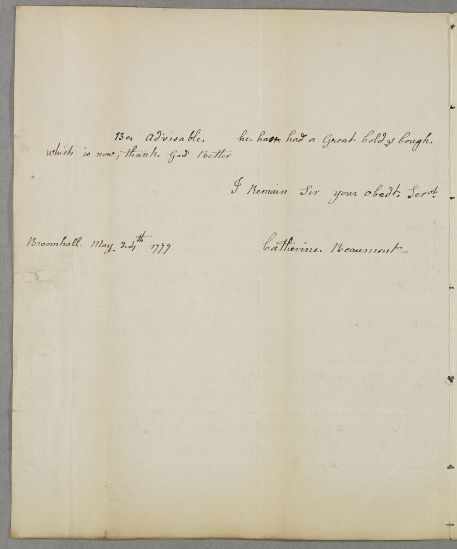 Be advisable, he has had a Great Cold & Cough.
which is now, thank God Better
I Remain Sir your obedt. Servt.
Broomhall May 24th 1777 Catherine Beaumont